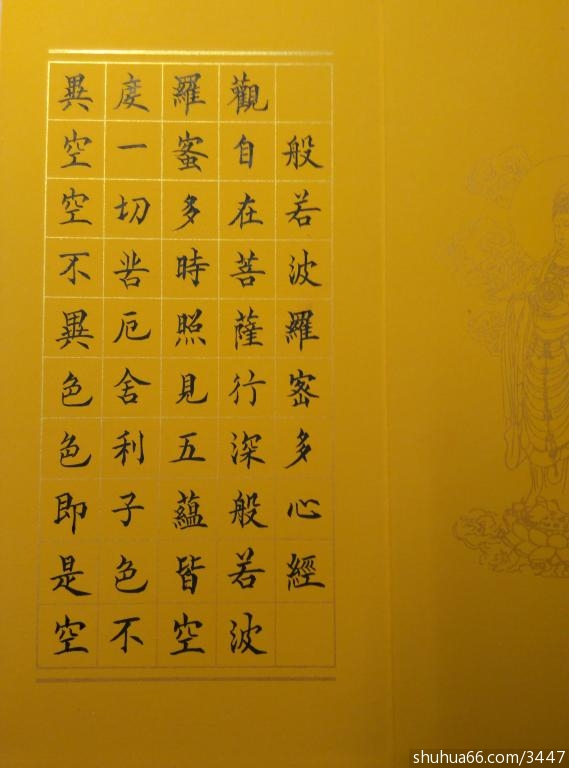 般若波羅密多心經
觀自在菩薩行深般若波
羅蜜多時照見五蘊皆空
度一切苦厄舍利子色不
異空空不異色色即是空
shuhua66.com/3447